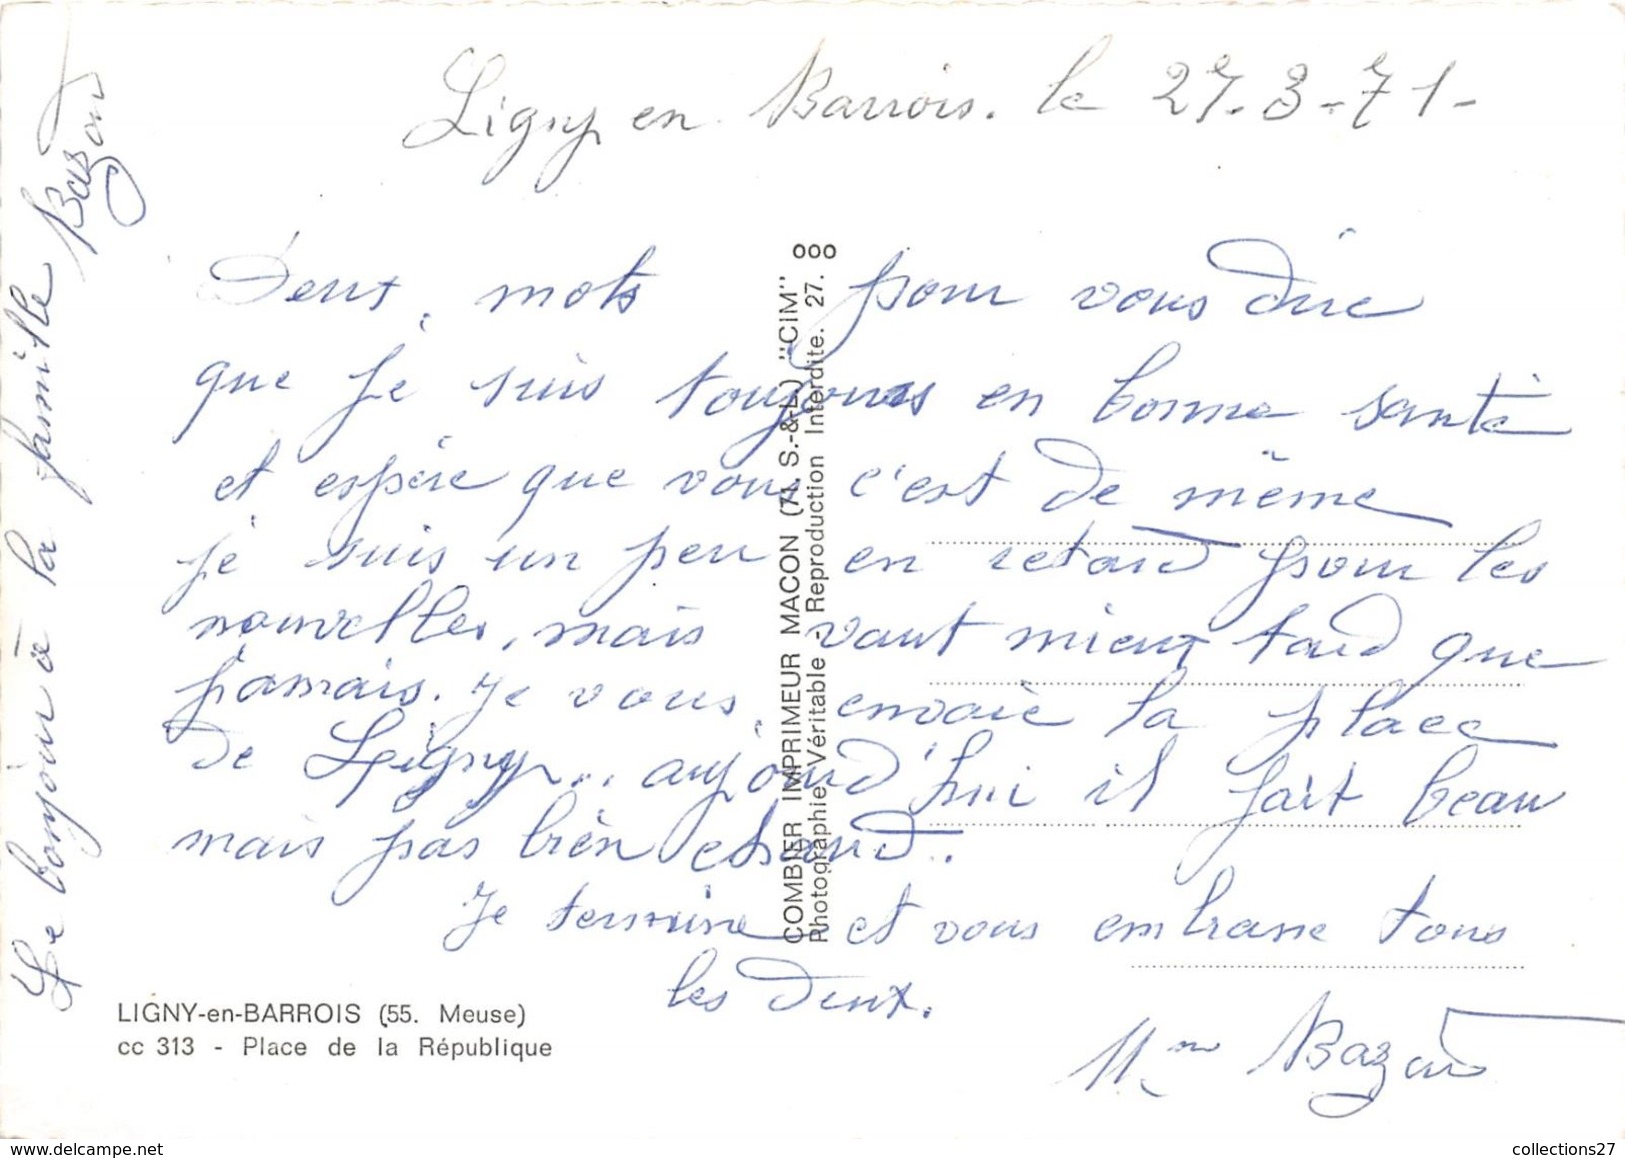 Ligny en Barrois. le 27-3-71-
Deux mots pour vous dire
que je suis toujours en bonne santé
et espère que vous c'est de même
je suis un peu en retard pour les
nouvelles, mais vaut mieux tard que
jamais. Je vous envoie la place
de Ligny... aujourd'hui il fait beau
mais pas bien chaud.
Je termine et vous embrasse tous
les deux.
Mme Bazons
Le bonjour à la famille
Bazons
LIGNY-en-BARROIS (55. Meuse)
cc 313 - Place de la République
COMBIER IMPRIMEUR MACON (71. S.-&-L.) "CIM"
Photographie Véritable - Reproduction Interdite. 27.
collections27